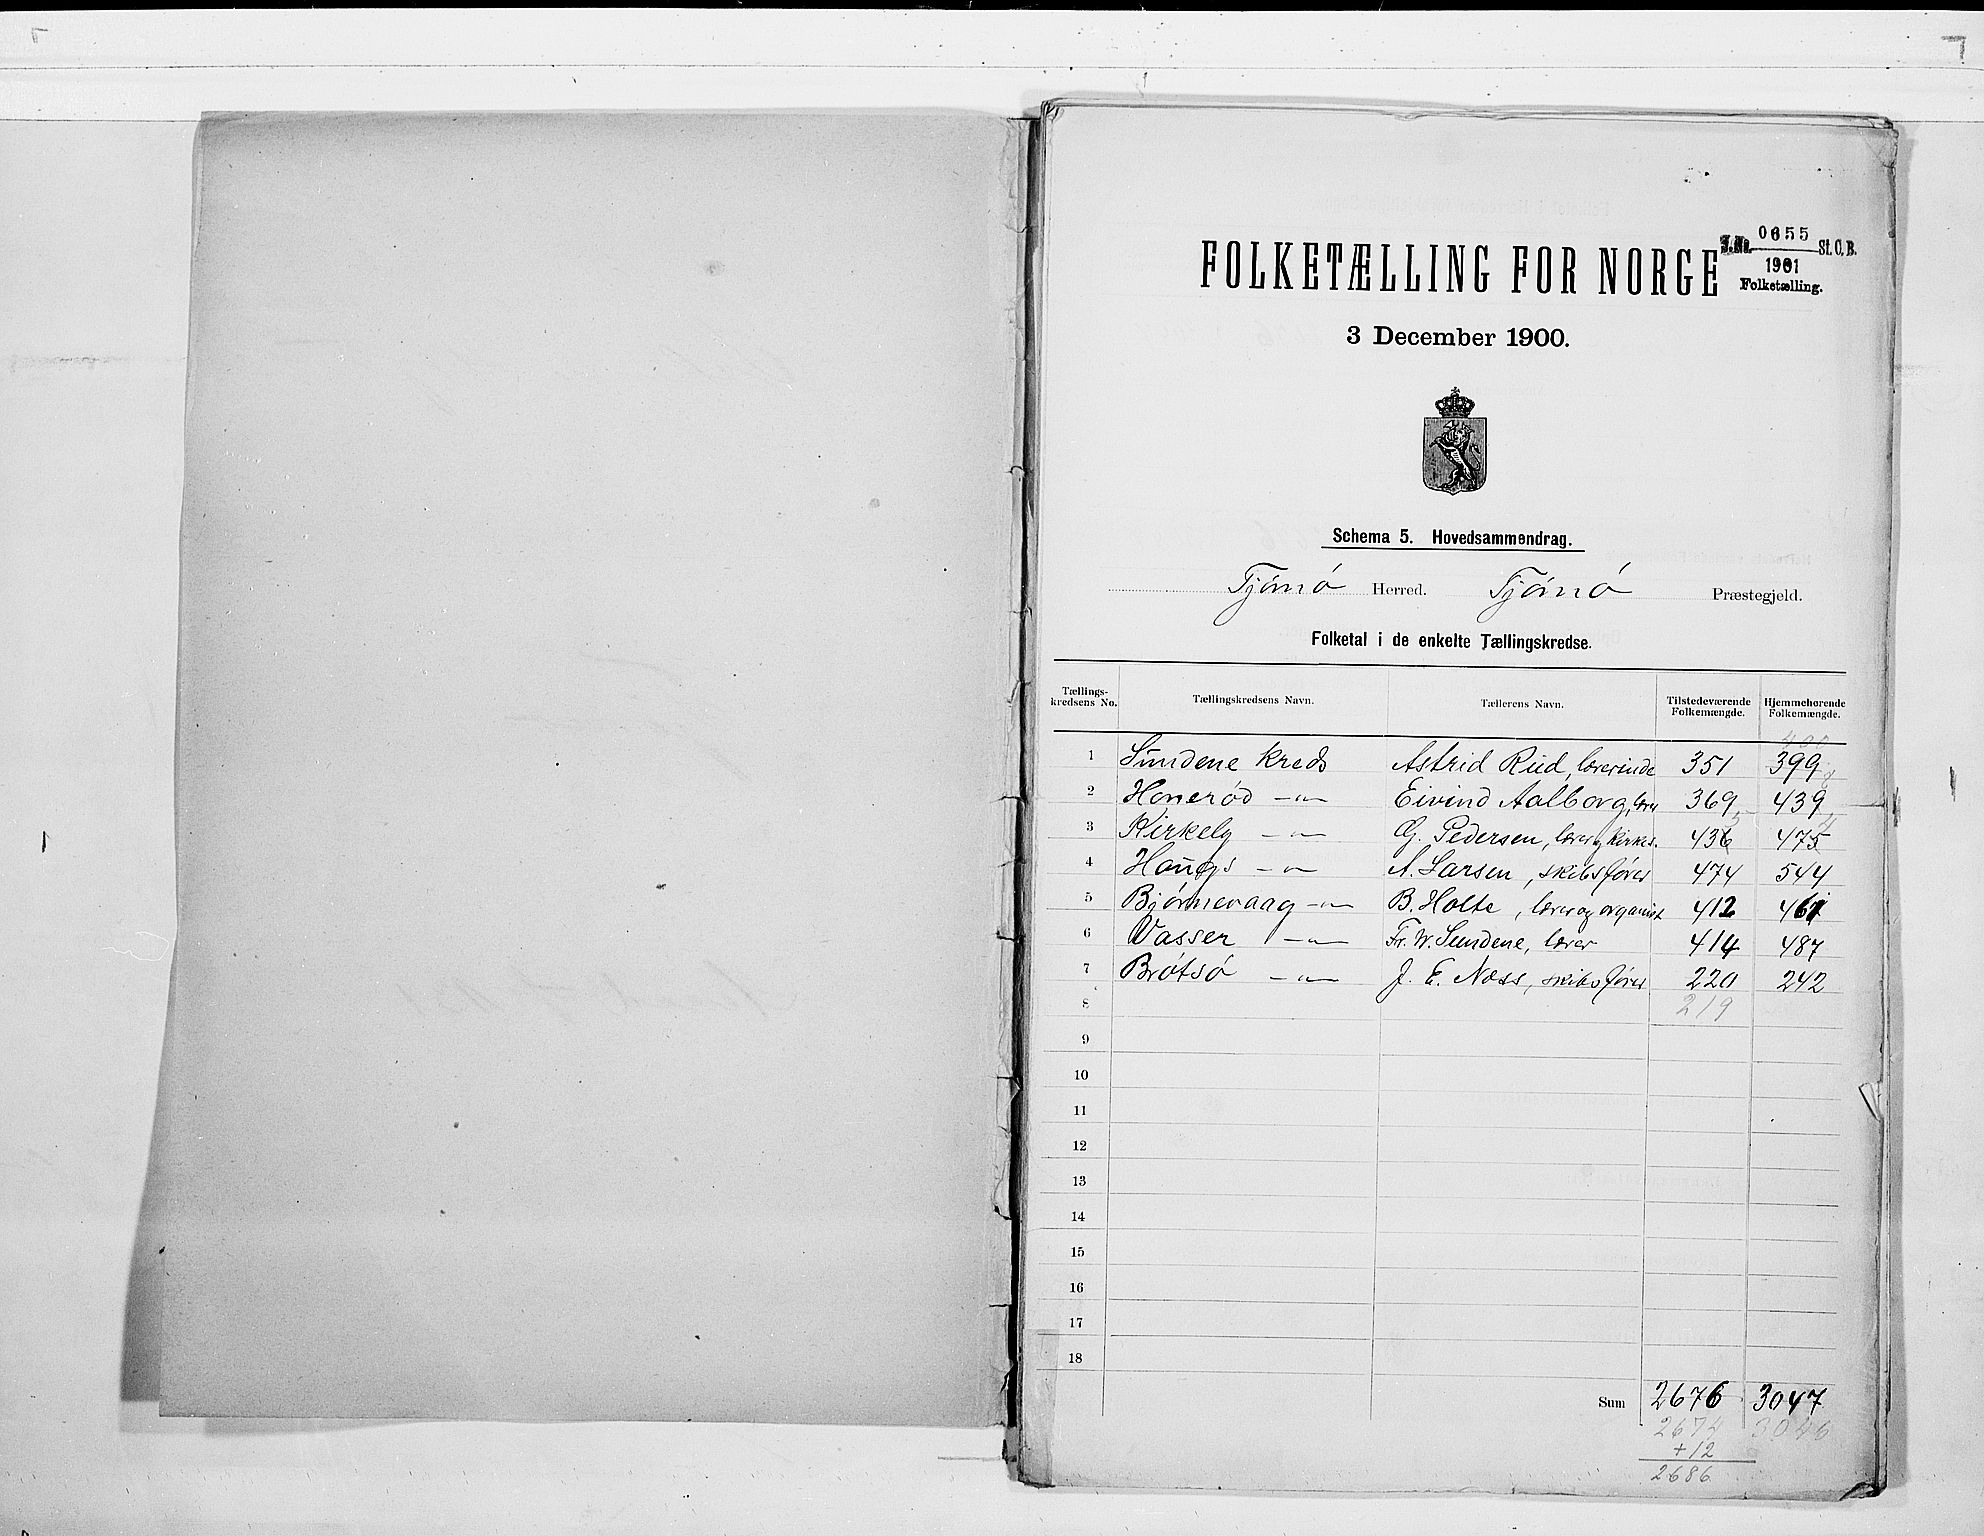 J.No. 0655 St. C. B.
1901
Folketælling.
FOLKETÆLLING FOR NORGE
3 December 1900.
Schema 5. Hovedsammendrag.
Tjømø Herred. Tjømø Præstegjeld.
Folketal i de enkelte Tællingskredse.
Tællings-kredsens No. Tællingskredsens Navn. Tællerens Navn. Tilstedeværende Folkemængde. Hjemmehørende Folkemængde.
400
1 Sundene kreds Astrid Rud, lærerinde 351 399
2 Honerød —„— Eivind Aalborg, lærer 369 439
3 Kirkely —„— G. Pedersen, lærer og kirkes. 436 475
4 Hougs —„— A. Larsen, skibsfører 474 544
5 Bjørnevaag —„— B. Holte, lærer og organist 412 461
6 Vasser —„— Fr. W. Sundene, lærer 414 487
7 Brøtsø —„— J. E. Næss, skibsfører 220 242
8 219
9
10
11
12
13
14
15
16
17
18
Sum 2676 3047
2674 3046
+12
2686